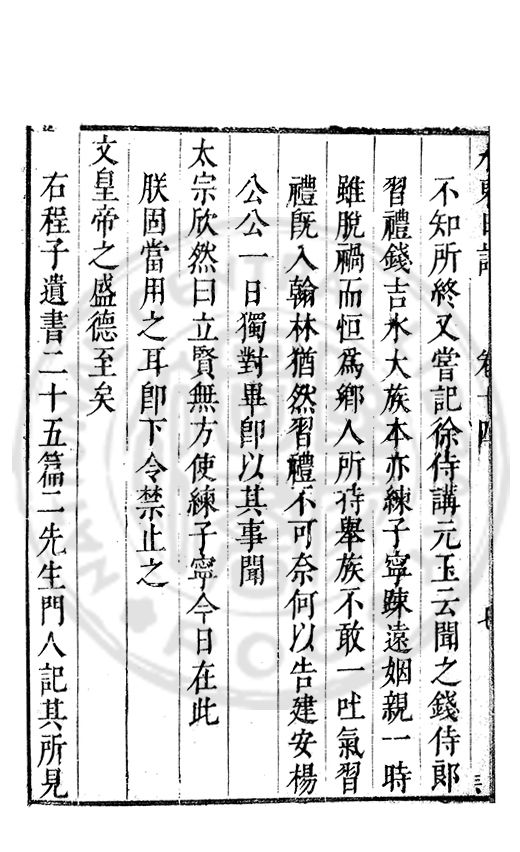 水東日記 卷十四
不知所終又嘗記徐侍講元玉云聞之錢侍郎
習禮錢吉水大族本亦練子寧踈遠姻親一時
雖脫禍而恒爲鄉人所持舉族不敢一吐氣習
禮旣入翰林猶然習禮不可奈何以告建安楊
公公一日獨對畢卽以其事聞
太宗欣然曰立賢無方使練子寧今日在此
朕固當用之耳卽下令禁止之
文皇帝之盛德至矣
右程子遺書二十五篇二先生門人記其所見